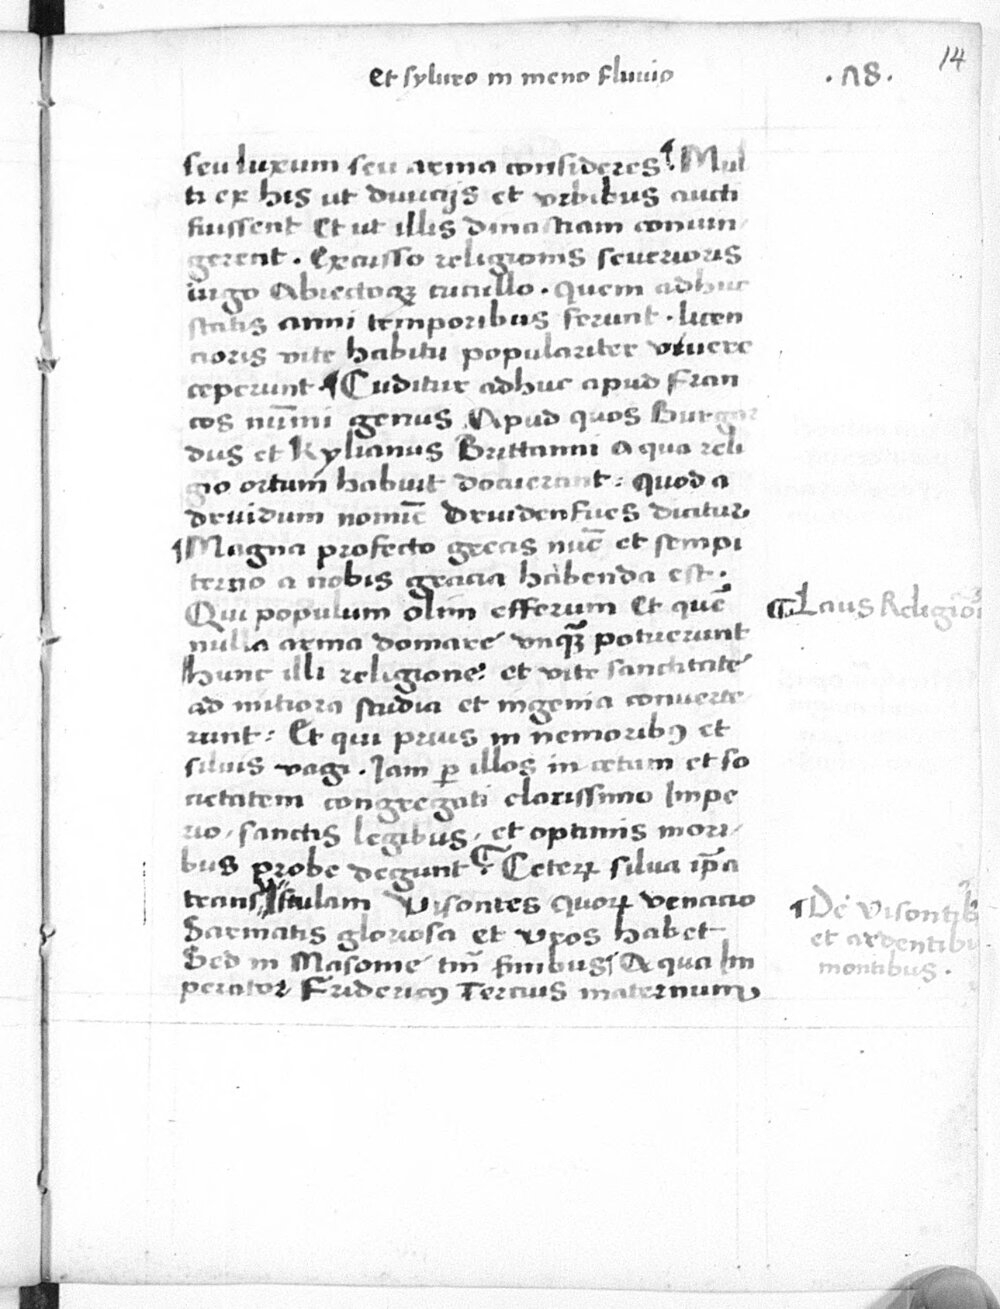 Et syluro in meno fluuio
.n8.
14
seu luxum seu arma consideres ¶ Mul
ti ex his ut diuicijs et vrbibus aucti
fuissent Et ut illis dinastiam coniun
gerent . Excusso religionis seuerioris
iugo Abiectoqꝫ cucullo . quem adhuc
statis anni temporibus ferunt . licen
cioris vite habitu populariter viuere
ceperunt . ¶ Cuditur adhuc apud Fran
cos nūmi genus Apud quos Burgar
dus et Kylianus Brittanni a qua reli
gio ortum habuit docuerant : quod a
druidum nomīe Druidenfues dicitur
¶ Magna profecto grecis nūc et sempi
terno a nobis gracia habenda est .
Qui populum olim efferum Et quē
nulla arma domare vnqꝫ potuerunt
hunc illi religione : et vite sanctitate
ad mitiora studia et ingenia conuerte
runt : Et qui prius in nemoribꝯ et
siluis vagi . Jam ꝑ illos in cetum et so
cietatem congregati clarissimo Impe
rio , sanctis legibus , et optimis mori
bus probe degunt . ¶ Ceteꝝ silua ip̄a
trans Vistulam Visontes quoꝝ venacio
Sarmatis gloriosa et Vros habet
Sed in Masouie tm̄ finibus A qua Im
perator Fridericꝯ Tercius maternum
¶ Laus Religiōi
¶ De Visontibꝯ
et ardentibu
montibus .